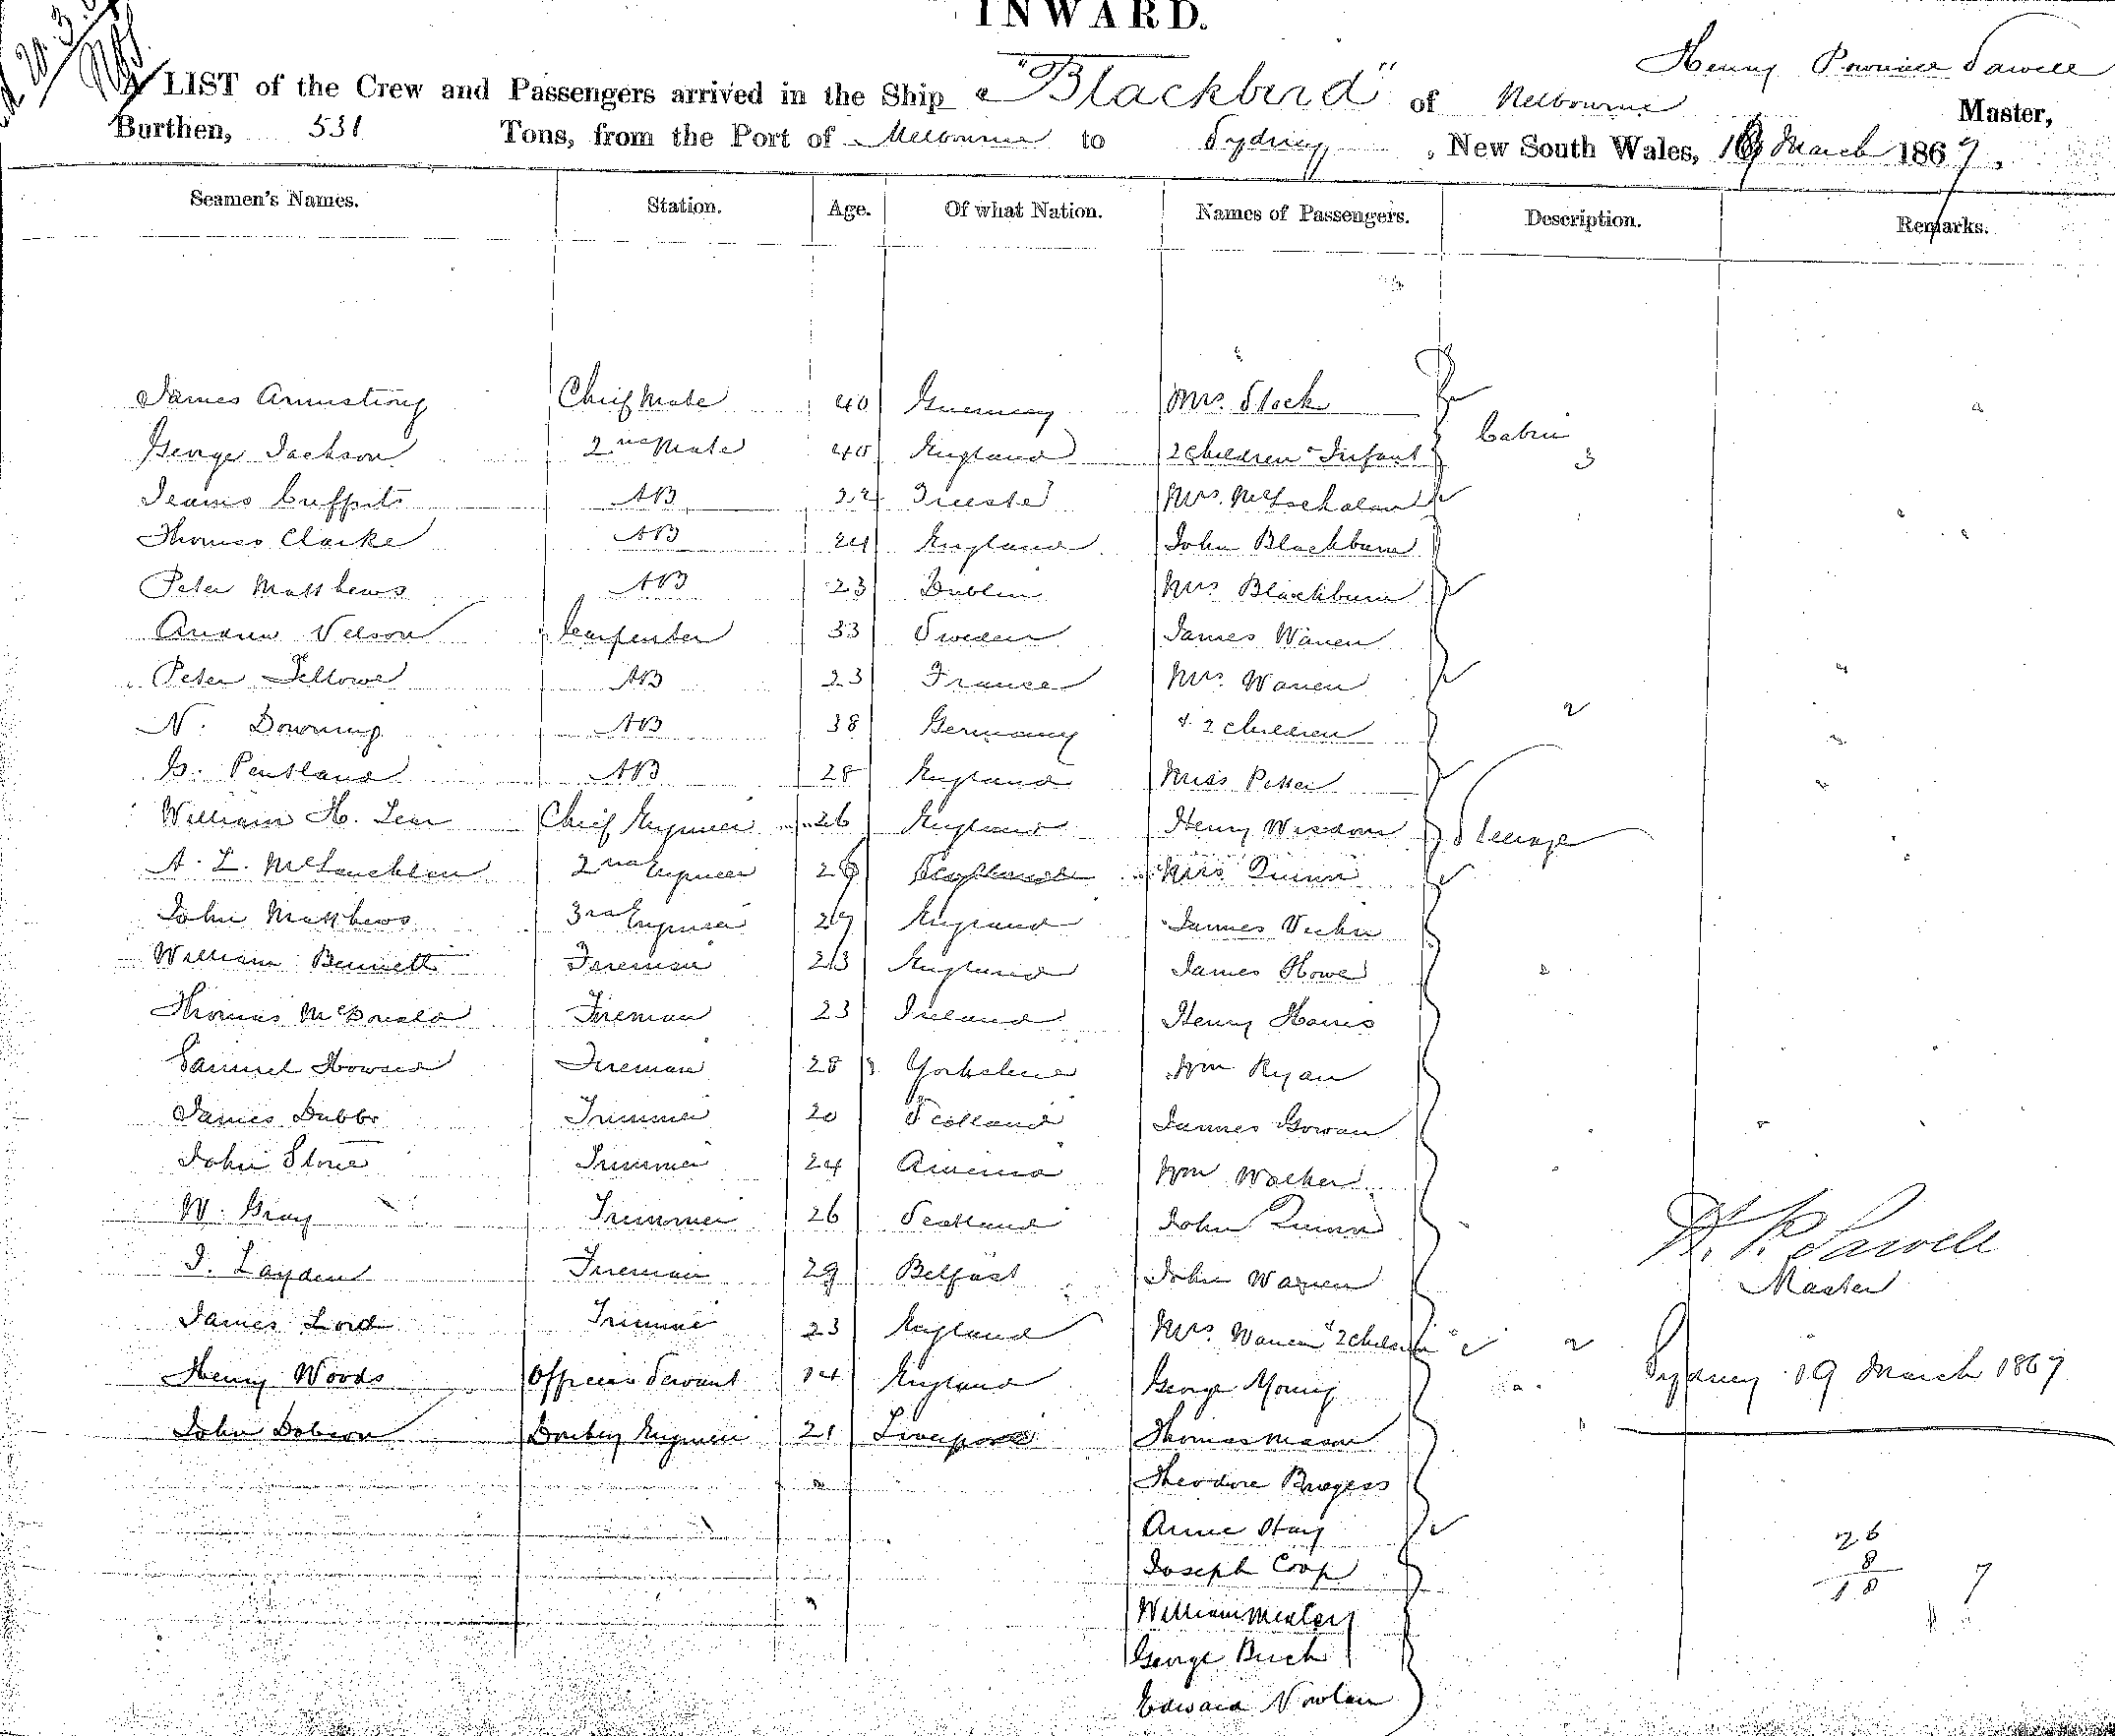 INWARD.
Henry Sawell
A LIST of the Crew and Passengers arrived in the Ship "Blackbird" of Melbourne Master,
Burthen, 531 Tons, from the Port of Melbourne to Sydney, New South Wales, 19 March 1867.
Seamen's Names. Station. Age. Of what Nation. Names of Passengers. Description. Remarks.
James Armstrong Chief Mate 40 Guernsey Mrs. Stock
George Jackson 2nd Mate 40 England 2 Children & Infant Cabin 3
AB Trieste Mrs.
Thomas Clarke AB 24 England John Blackburn
Peter Matthews AB 23 Dublin Mrs Blackburn
Andrew Nelson Carpenter 33 Sweden James Warren
Peter AB 23 France Mrs. Warren
N. Downing AB 38 Germany & 2 children 2
G. Pentland AB 28 England Miss Potter
William H. Chief Engineer 26 England Henry Wisdom Steerage
A. L. McLauchlan 2nd Engineer Scotland Quinn
John Matthews 3rd Engineer 27 England James
William Bennett Fireman 23 England James Howe
Thomas McDonald Fireman 23 Ireland Henry Harris
Samuel Howard Fireman 28 Yorkshire Wm Ryan
James Dubbs Trimmer 20 Scotland James Gowan
John Stone Trimmer 24 America Wm Walker
W. Gray Trimmer 26 Scotland John Quinn
H. P. Sawell
J. Layden Fireman 29 Belfast John Warren
Master
James Lord Trimmer 23 England Mrs. Warren & 2 Children 2
Henry Woods Officers Servant 14 England George Young
Sydney 19 March 1867
John Dobson Donkey Engineer 21 Liverpool Thomas Mason
Theodore Burgess
Anne Hay
26
Joseph Coop
8
18 7
William
George Birch
Edward Nowlan